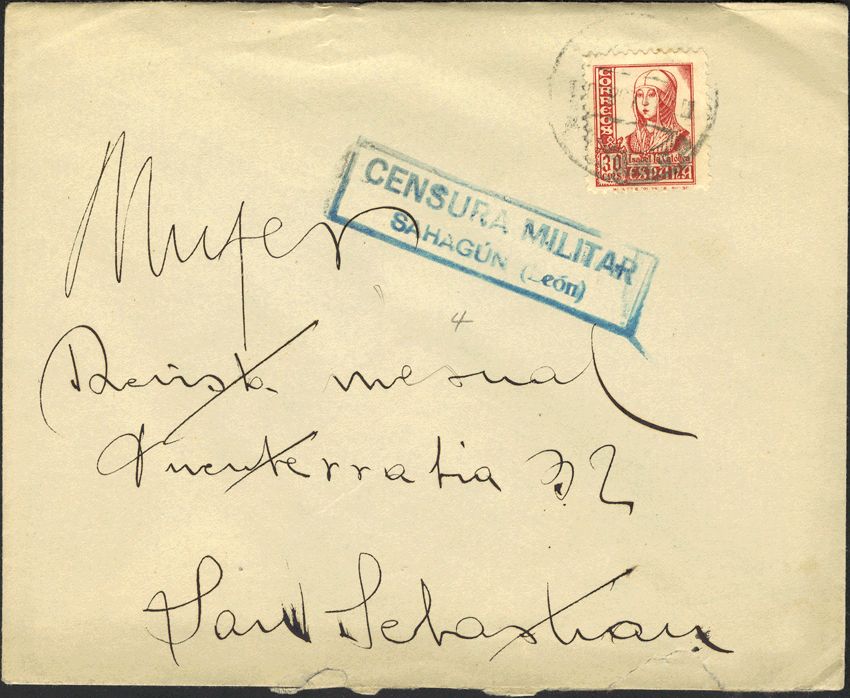 CORREOS
30
CTS
Isabel la Católica
ESPAÑA
CENSURA MILITAR
SAHAGÚN (León)
Mujer
4
Revista mesual
Fuenterrabia 32
San Sebastian